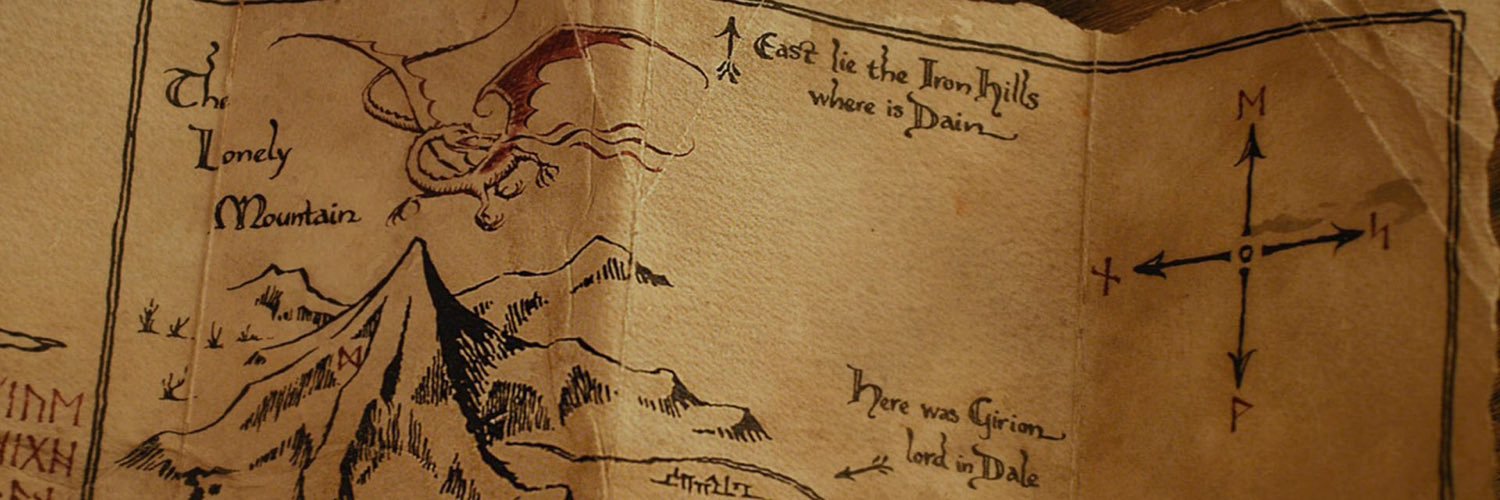 The
Lonely
Mountain
East lie the Iron Hills
where is Dain
ᛖ
ᛋ
ᚹ
ᛞ
Here was Girion
lord in Dale